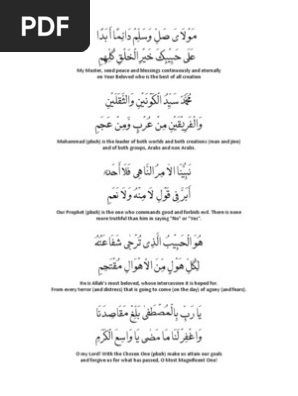 PDF
مَوْلَايَ صَلِّ وَسَلِّمْ دَائِمًا أَبَدًا
عَلَى حَبِيبِكَ خَيْرِ الْخَلْقِ كُلِّهِمِ
My Master, send peace and blessings continuously and eternally
on Your Beloved who is the best of all creation
مُحَمَّدٌ سَيِّدُ الْكَوْنَيْنِ وَالثَّقَلَيْنِ
وَالْفَرِيقَيْنِ مِنْ عُرْبٍ وَّمِنْ عَجَمِ
Muhammad (pbuh) is the leader of both worlds and both creations (man and jinn)
and of both groups, Arabs and non Arabs.
نَبِيُّنَا الْآمِرُ النَّاهِي فَلَا أَحَدٌ
أَبَرَّ فِي قَوْلِ لَا مِنْهُ وَلَا نَعَمِ
Our Prophet (pbuh) is the one who commands good and forbids evil. There is none
more truthful than him in saying "No" or "Yes".
هُوَ الْحَبِيبُ الَّذِي تُرْجَى شَفَاعَتُهُ
لِكُلِّ هَوْلٍ مِنَ الْأَهْوَالِ مُقْتَحِمِ
He is Allah's most beloved, whose intercession it is hoped for.
From every terror (and distress) that is going to come (on the day) of agony (and fears).
يَا رَبِّ بِالْمُصْطَفَى بَلِّغْ مَقَاصِدَنَا
وَاغْفِرْ لَنَا مَا مَضَى يَا وَاسِعَ الْكَرَمِ
O my Lord! With the Chosen One (pbuh) make us attain our goals
and forgive us for what has passed, O Most Magnificent One!